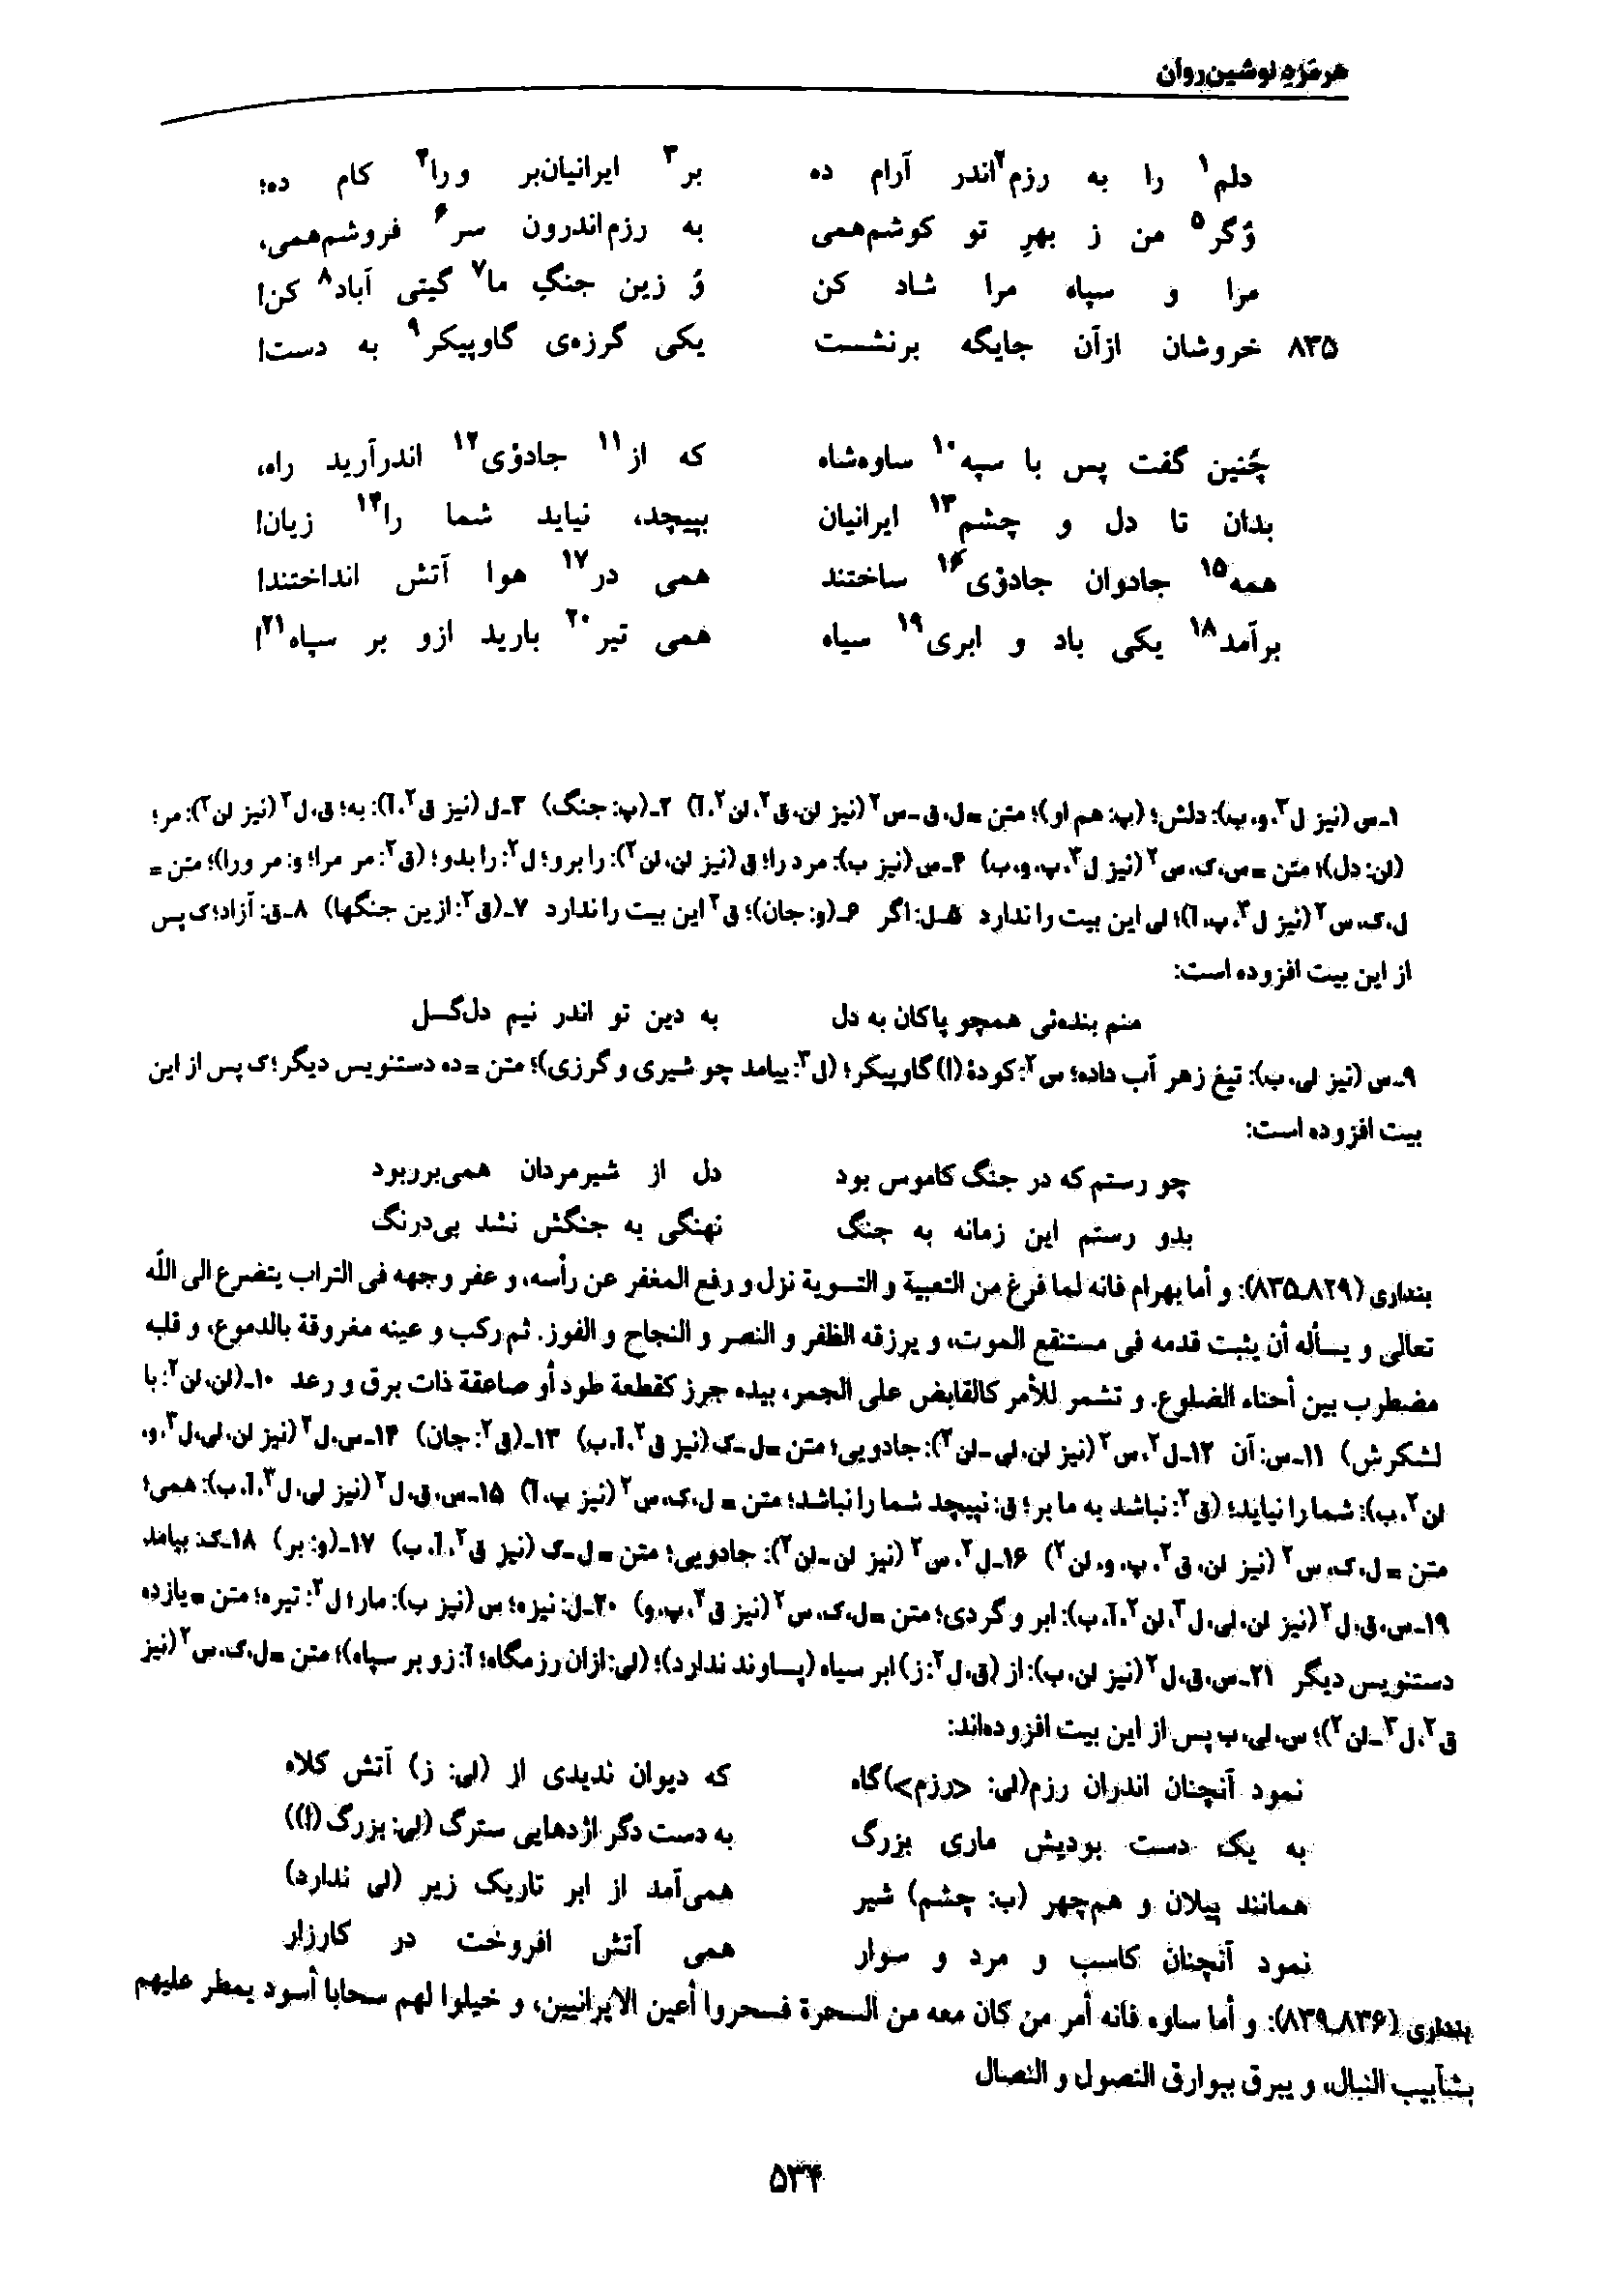 هرمزد نوشین‌روان
دلم۱ را به رزم۲ اندر آرام ده بر۳ ایرانیان‌بر ورا۴ کام ده؛
وُگر۵ من ز بهرِ تو کوشم‌همی به رزم‌اندرون سر۶ فروشم‌همی،
مرا و سپاه مرا شاد کن وُ زین جنگِ ما۷ گیتی آباد۸ کن!
۸۳۵ خروشان ازآن جایگه برنشست یکی گرزه‌ی گاوپیکر۹ به دست!
چُنین گفت پس با سپه۱۰ ساوه‌شاه که از۱۱ جادوْی۱۲ اندرآرید راه،
بدان تا دل و چشم۱۳ ایرانیان بپیچد، نیاید شما را۱۴ زیان!
همه۱۵ جادوان جادوْی۱۶ ساختند همی در۱۷ هوا آتش انداختند!
برآمد۱۸ یکی باد و ابری۱۹ سیاه همی تیر۲۰ بارید ازو بر سپاه۲۱!
۱ـ س (نیز ل۳، و، پ): دلش؛ (پ: هم او)؛ متن = ل، ق ـ س۲ (نیز لن، ق۲، لن۲، آ) ۲ـ (پ: جنگ) ۳ـ ل (نیز ق۲، آ): به؛ ق، ل۲ (نیز لن۲): مر؛
(لن: دل)؛ متن = س، ک، س۲ (نیز ل۳، پ، و، ب) ۴ـ س (نیز ب): مرد را؛ ق (نیز لن، لن۲): را برو؛ ل۲: را بدو؛ (ق۲: مر مرا؛ و: مر ورا)؛ متن =
ل، ک، س۲ (نیز ل۳، پ، آ)؛ لی این بیت را ندارد ۵ـ ل: اگر ۶ـ (و: جان)؛ ق۲ این بیت را ندارد ۷ـ (ق۲: ازین جنگها) ۸ـ ق: آزاد؛ ک پس
از این بیت افزوده است:
منم بنده‌ئی همچو پاکان به دل به دین تو اندر نیم دل‌گسل
۹ـ س (نیز لی، ب): تیغ زهر آب داده؛ س۲: کودهٔ (!) گاوپیکر؛ (ل۳: بیامد چو شیری و گرزی)؛ متن = ده دستنویس دیگر؛ ک پس از این
بیت افزوده است:
چو رستم که در جنگ کاموس بود دل از شیرمردان همی‌برربود
بدو رستم این زمانه به جنگ نهنگی به جنگش نشد بی‌درنگ
بنداری (۸۲۹ـ۸۳۵): و أما بهرام فانه لما فرغ من التعبیة و التسویة نزل و رفع المغفر عن رأسه، و عفر وجهه فی التراب یتضرع الی اللّه
تعالی و یسأله أن یثبت قدمه فی مستنقع الموت، و یرزقه الظفر و النصر و النجاح و الفوز. ثم رکب و عینه مغروقة بالدموع، و قلبه
مضطرب بین أحناء الضلوع. و تشمر للأمر کالقابض علی الجمر، بیده جرز کقطعة طود أو صاعقة ذات برق و رعد ۱۰ـ (لن، لن۲: با
لشکرش) ۱۱ـ س: آن ۱۲ـ ل۲، س۲ (نیز لن، لی ـ لن۲): جادویی؛ متن = ل ـ ک (نیز ق۲، آ، ب) ۱۳ـ (ق۲: جان) ۱۴ـ س، ل۲ (نیز لن، لی، ل۳، و،
لن۲، ب): شما را نیاید؛ (ق۲: نباشد به ما بر؛ ق: نپیچد شما را نباشد؛ متن = ل، ک، س۲ (نیز پ، آ) ۱۵ـ س، ق، ل۲ (نیز لی، ل۳، آ، ب): همی؛
متن = ل، ک، س۲ (نیز لن، ق۲، پ، و، لن۲) ۱۶ـ ل۲، س۲ (نیز لن ـ لن۲): جادویی؛ متن = ل ـ ک (نیز ق۲، آ، ب) ۱۷ـ (و: بر) ۱۸ـ ک: بیامد
۱۹ـ س، ق، ل۲ (نیز لن، لی، ل۳، لن۲، آ، ب): ابر و گردی؛ متن = ل، ک، س۲ (نیز ق۲، پ، و) ۲۰ـ ل: نیزه؛ س (نیز ب): مار؛ ل۲: تیره؛ متن = یازده
دستنویس دیگر ۲۱ـ س، ق، ل۲ (نیز لن، ب): از (ق، ل۲: ز) ابر سیاه (پساوند ندارد)؛ (لی: ازان رزمگاه؛ آ: زو بر سپاه)؛ متن = ل، ک، س۲ (نیز
ق۲، ل۳ ـ لن۲)؛ س، لی، ب پس از این بیت افزوده‌اند:
نمود آنچنان اندران رزم(لی: <رزم>)گاه که دیوان ندیدی از (لی: ز) آتش کلاه
به یک دست بودیش ماری بزرگ به دست دگر اژدهایی سترگ (لی: بزرگ (!))
همانند پیلان و هم‌چهر (ب: چشم) شیر همی‌آمد از ابر تاریک زیر (لی ندارد)
نمود آنچنان کاسب و مرد و سوار همی آتش افروخت در کارزار
بنداری (۸۳۶ـ۸۳۹): و أما ساوه فانه أمر من کان معه من السحرة فسحروا أعین الایرانیین، و خیلوا لهم سحابا أسود یمطر علیهم
بشآبیب النبال، و یبرق ببوارق النصول و النصال
۵۳۴